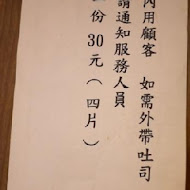 內用顧客 如需外帶吐司
請通知服務人員
份30元(四片)